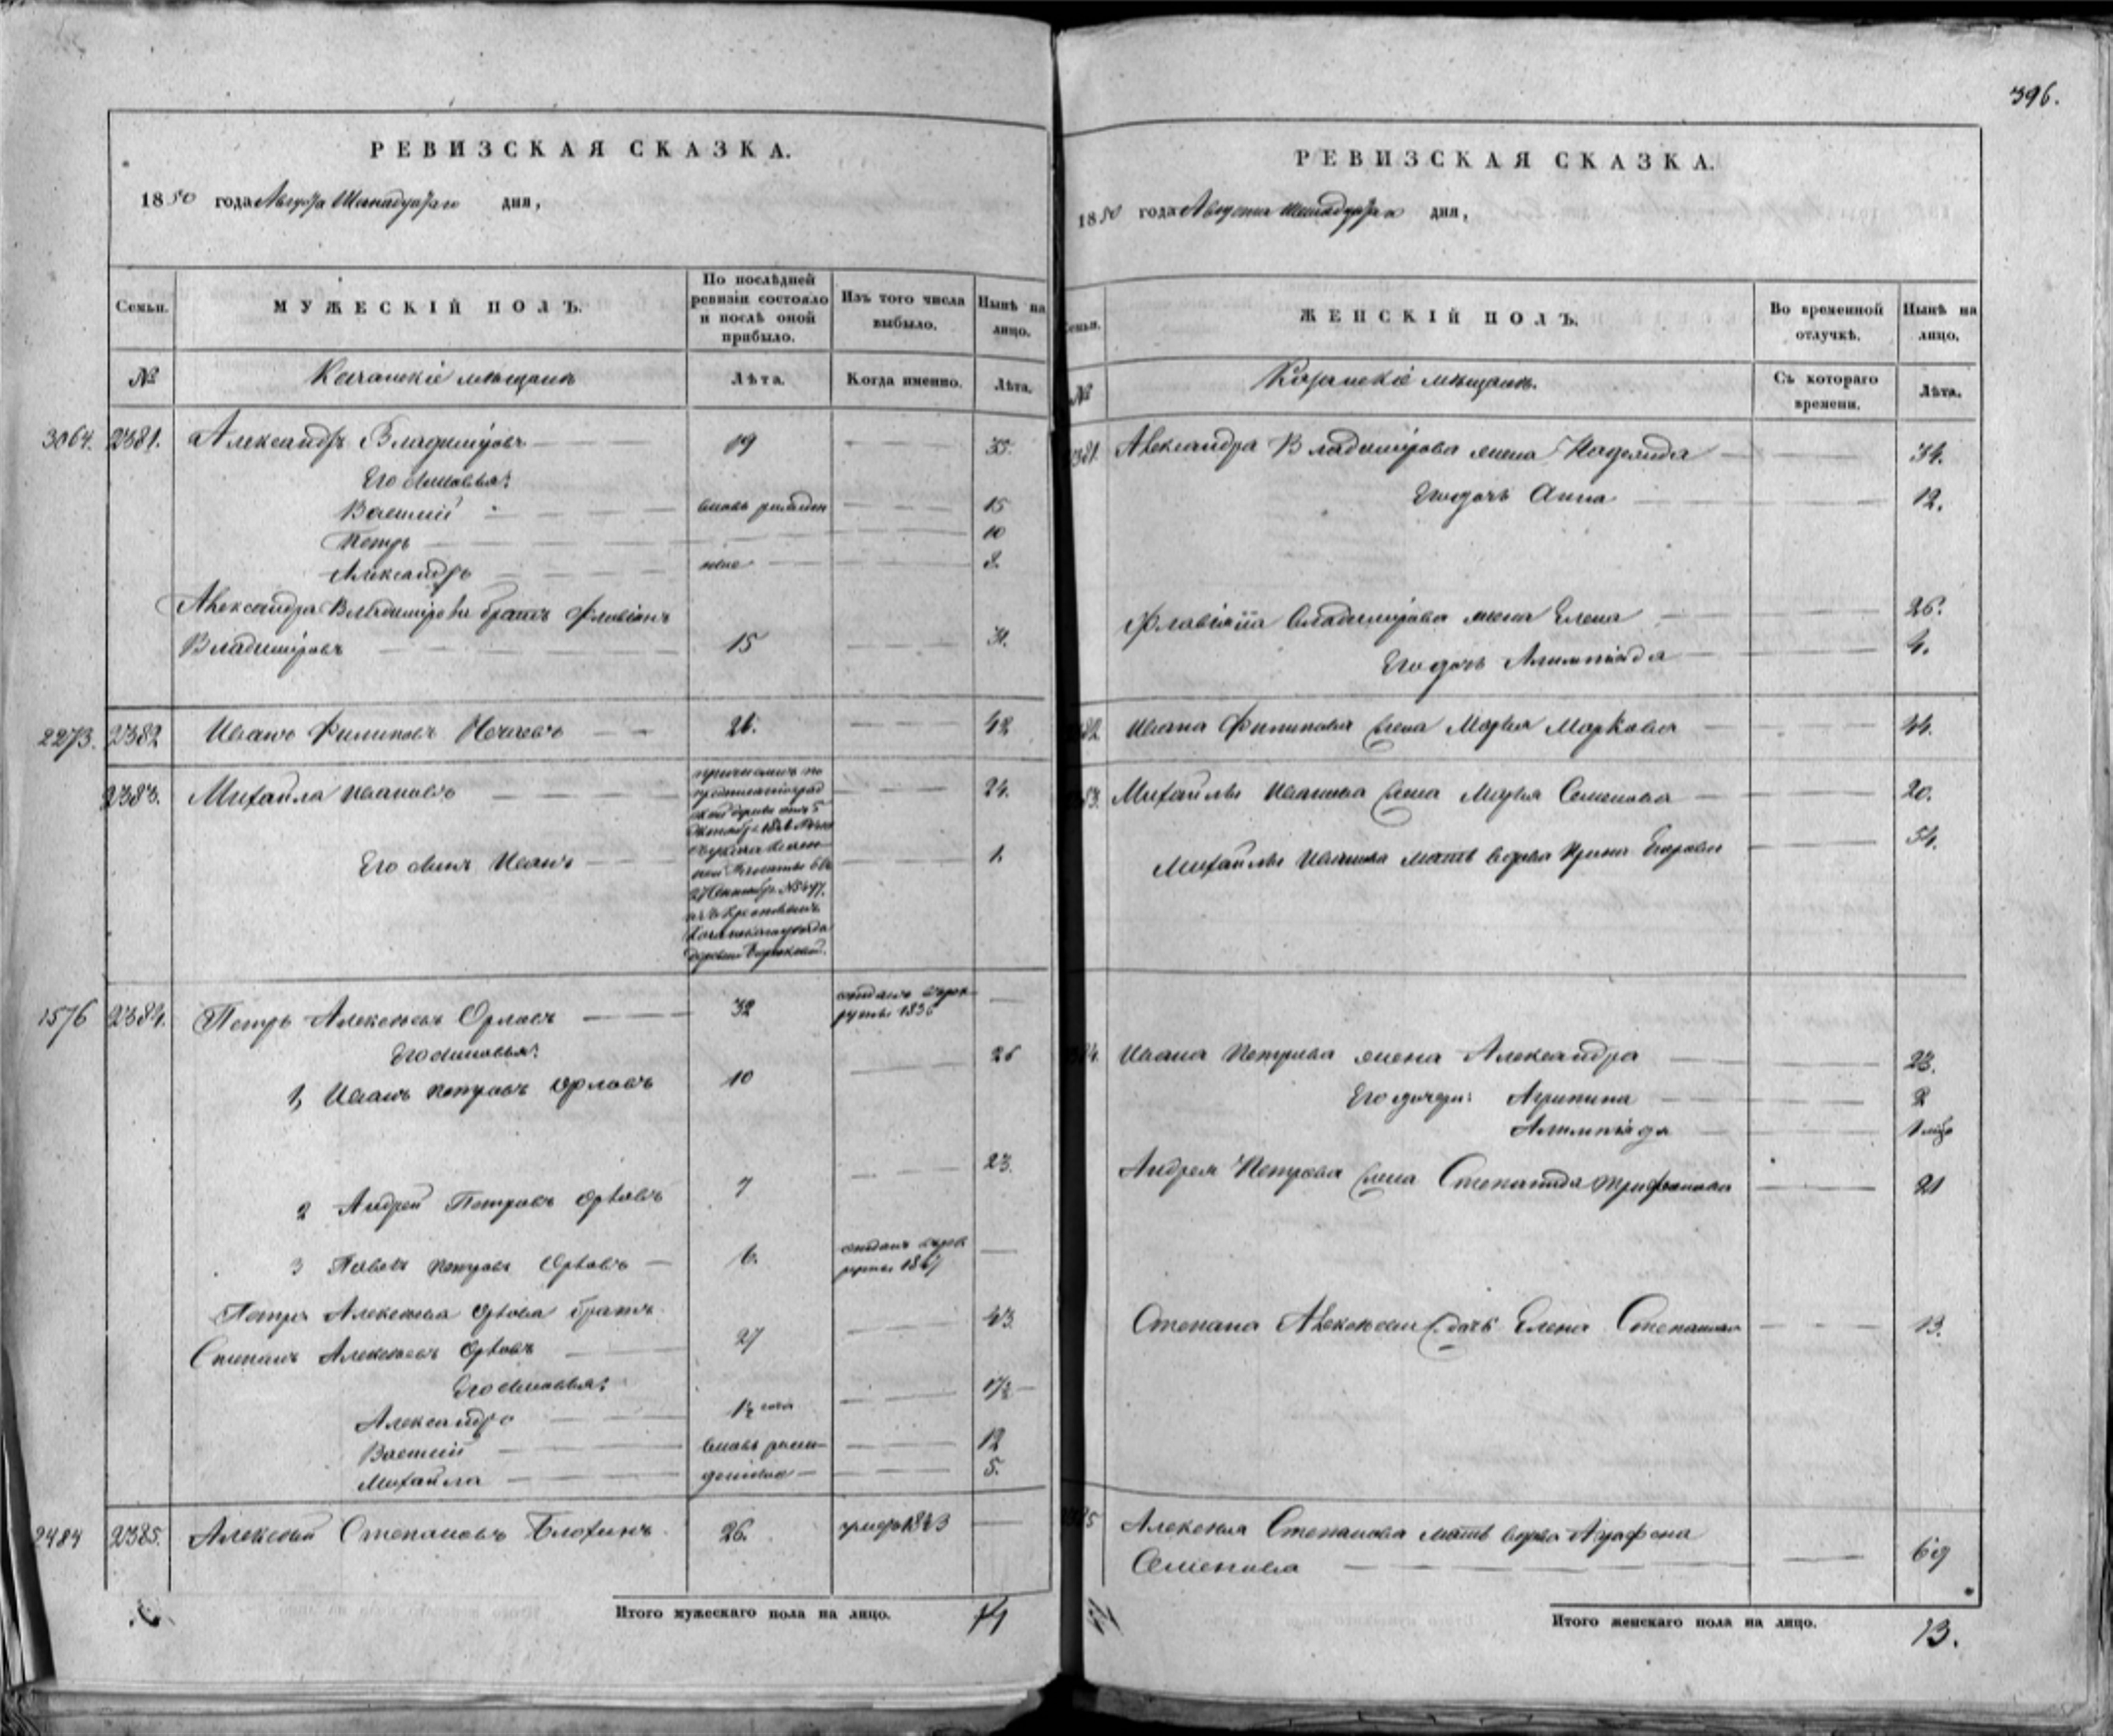 396.
РЕВИЗСКАЯ СКАЗКА.
1850 года Августа Шестнадцатаго дня,
Семьи.
МУЖЕСКІЙ ПОЛЪ.
По послѣдней ревизіи состояло и послѣ оной прибыло.
Изъ того числа выбыло.
Нынѣ на лицо.
№
Казанскіе мѣщане
Лѣта.
Когда именно.
Лѣта.
3064. 2381. Александръ Владиміровъ 19 35.
Его сыновья:
Василій вновь рожден 15
Петръ 10
Александръ ные 8.
Александра Владимірова братъ Флавіанъ
Владиміровъ 15 31.
2273. 2382 Иванъ Филиповъ Нечаевъ 26. 42
2383. Михайла Ивановъ 24.
причисленъ по
Его сынъ Иванъ 1.
1576 2384. Петръ Алексѣевъ Орловъ 32 отданъ въ рек-
руты 1836
Его сыновья:
1, Иванъ Петровъ Орловъ 10 26
2 Андрей Петровъ Орловъ 7 23.
3 Павелъ Петровъ Орловъ 6. отданъ въ рек
руты 1847
Петра Алексѣева Орлова братъ
Степанъ Алексѣевъ Орловъ 27 43.
Его сыновья:
Александръ 1½ года 17½
Василій вновь рож- 12
Михайла денные 5.
2484 2385. Алексѣй Степановъ Блохинъ 26. умеръ 1843
Итого мужескаго пола на лицо. 14
РЕВИЗСКАЯ СКАЗКА.
1850 года Августа Шестнадцатаго дня,
Семьи.
ЖЕНСКІЙ ПОЛЪ.
Во временной отлучкѣ.
Нынѣ на лицо.
№
Казанскіе мѣщане.
Съ котораго времени.
Лѣта.
381. Александра Владимірова жена Надежда 34.
Его дочь Анна 12.
Флавіана Владимірова жена Елена 26.
Его дочь Алимпіада 4.
82. Ивана Филипова жена Марья Маркова 44.
83. Михайлы Иванова жена Марья Семенова 20.
Михайлы Иванова мать вдова Ирина Егорова 54.
84. Ивана Петрова жена Александра 23.
Его дочери: Агрипина 2
Алимпіада 1
Андрея Петрова жена Степанида Трифонова 21
Степана Алексѣева дочь Елена Степанова 13.
2385 Алексѣя Степанова мать вдова Агафена
Семенова 69
Итого женскаго пола на лицо. 13.